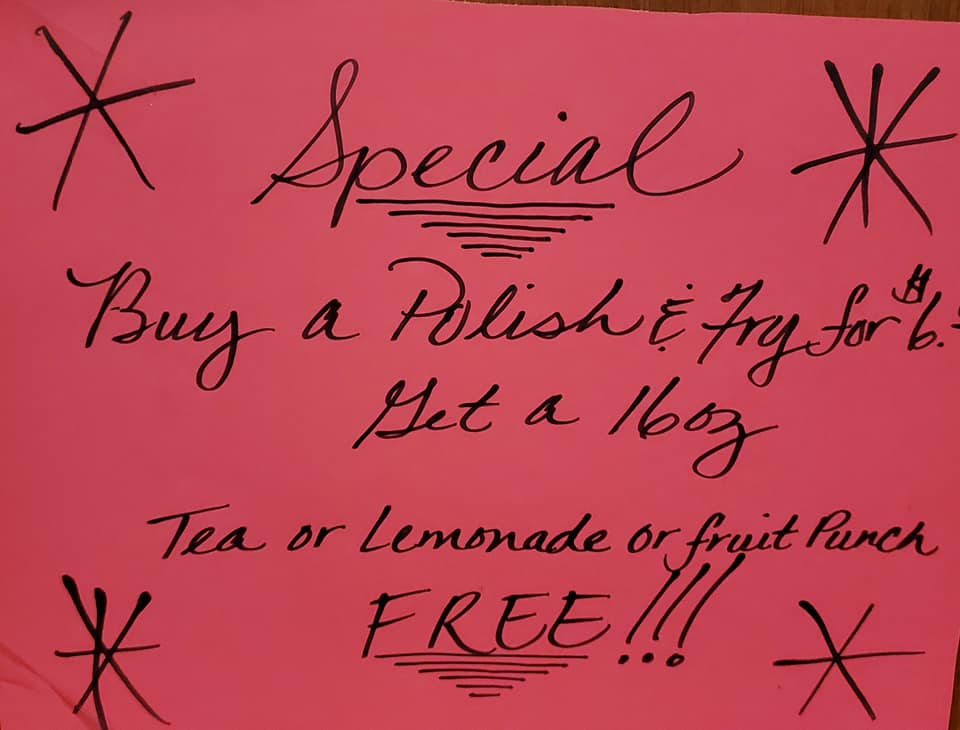 Special
Buy a Polish & Fry for $6.
Get a 16oz
Tea or Lemonade or fruit Punch
FREE!!!